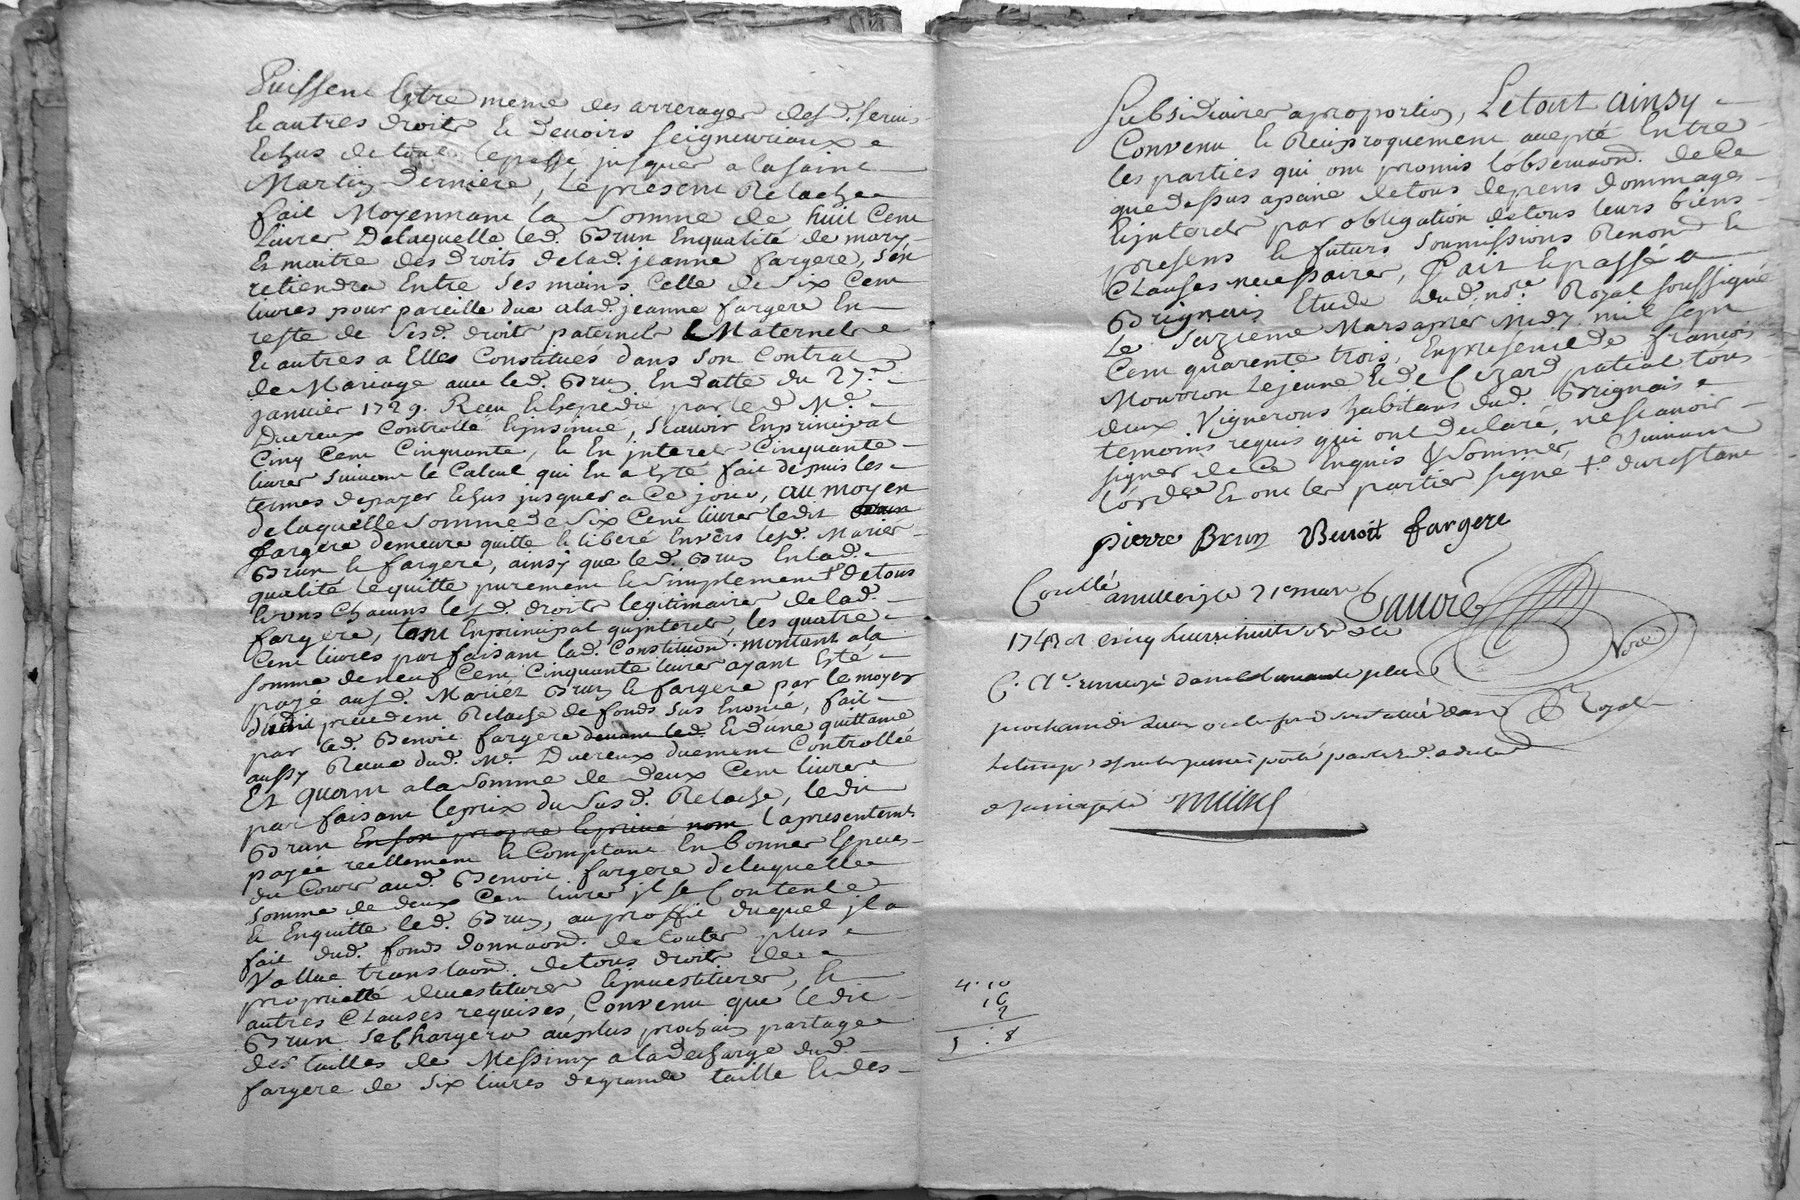 Puissent Estre meme des arrerages desd. servis
& autres droits & devoirs seigneuriaux
Echus de tout lepassé jusques a lasaint
Martin Derniere, Le present Relache
fait Moyennant la somme de huit Cent
Livres Delaquelle led. Brun Enqualité de mary
Et maitre des droits delad. jeanne fargere, s'en
retiendra Entre ses mains Celle de Six Cent
livres pour pareille due alad. jeanne fargere En
reste de sesd. droits paternels & Maternels
& autres a Elles Constitués dans son Contrat
de Mariage avec led. Brun En datte du 27e.
janvier 1729. Receu & Expedié par led. Me.
Duereux Controllé & jnsinué, scavoir Enprincipal
Cinq Cent Cinquante, & En jnterets Cinquante
livres suivant le Calcul qui En a Esté fait depuis les
termes depayer Echus jusques a Ce jour, au moyen
delaquelle somme de Six Cent livres ledit
fargere demeure quitte & liberé Envers lesd. Mariés
Brun & fargere, ainsy que led. Brun Enlad.
qualité lequitte purement & simplement de tous
lesd. droits legitimaires delad.
fargere, tant Enprincipal qujnterets, les quatre
Cent livres parfaisant lad. Constituon. montant ala
somme deneuf Cent Cinquante livres ayant Esté
payé ausd. Mariéz Brun & fargere par le moyen
precedent Relache de fonds sus Enoncé, fait
par led. Benoit fargere devant led. & d'une quittance
aussy Receue dud. Me. Duereux duement Controllée
Et quant ala somme de deux Cent livres
parfaisant leprix du susd. Relache, ledit
Brun En son propre & privé nom l'apresentement
payée reellement & Comptant En bonnes Especes
du Cours aud. Benoit fargere delaquelle
somme de deux Cent livres jl se Contente
& Enquitte led. Brun, auproffit duquel jl a
fait dud. fonds donnaon. detoutes plus
Vallue translaon. detous droits de
proprietté devestitures & jnvestitures, &
autres Clauses requises, Convenu que ledit
Brun seChargera auplus prochain partage
des tailles de Messimy a la decharge dud.
fargere de Six livres degrande taille & des
Subsidiaires aproportion, Letout ainsy
Convenu & Reciproquement accepté Entre
les parties qui ont promis l'observaon. de Ce
que dessus apaine detous depens dommages
& jnterets par obligation detous leurs biens
presens & futurs soumissions Renon. &
Clauses necessaires, fait & passé a
Brignais Etude dud. nore. Royal soussigné
Le Seizieme Mars apres Midy mil sept
Cent quarente trois, Enpresence de francois
Mouton Lejeune & de Cezard patial tous
deux Vignerons habitans dud. Brignais
temoins requis qui ont declaré, nescavoir
signer de Ce Enquis & Sommés, suivant
l'ordce Et ont les parties signé
pierre Brun Benoit fargere
Conllé
1743
Nore
Royal
4 . 10
16
2
5 : 8